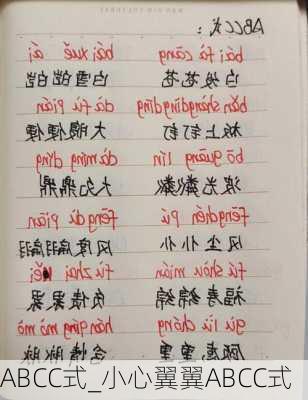 ABCC式：
bái fà cāng bái xuě ái
白发苍苍 白雪皑皑
bǎn shàngdīngdīng dà fù pián
板上钉钉 大腹便便
bō guāng lín dà míng dǐng
波光粼粼 大名鼎鼎
fēngchén pú fēng dù piān
风尘仆仆 风度翩翩
fú shòu mián fù zhài lěi
福寿绵绵 负债累累
gù lǜ chóng hán qíng mò mò
顾虑重重 含情脉脉
ABCC式_小心翼翼ABCC式